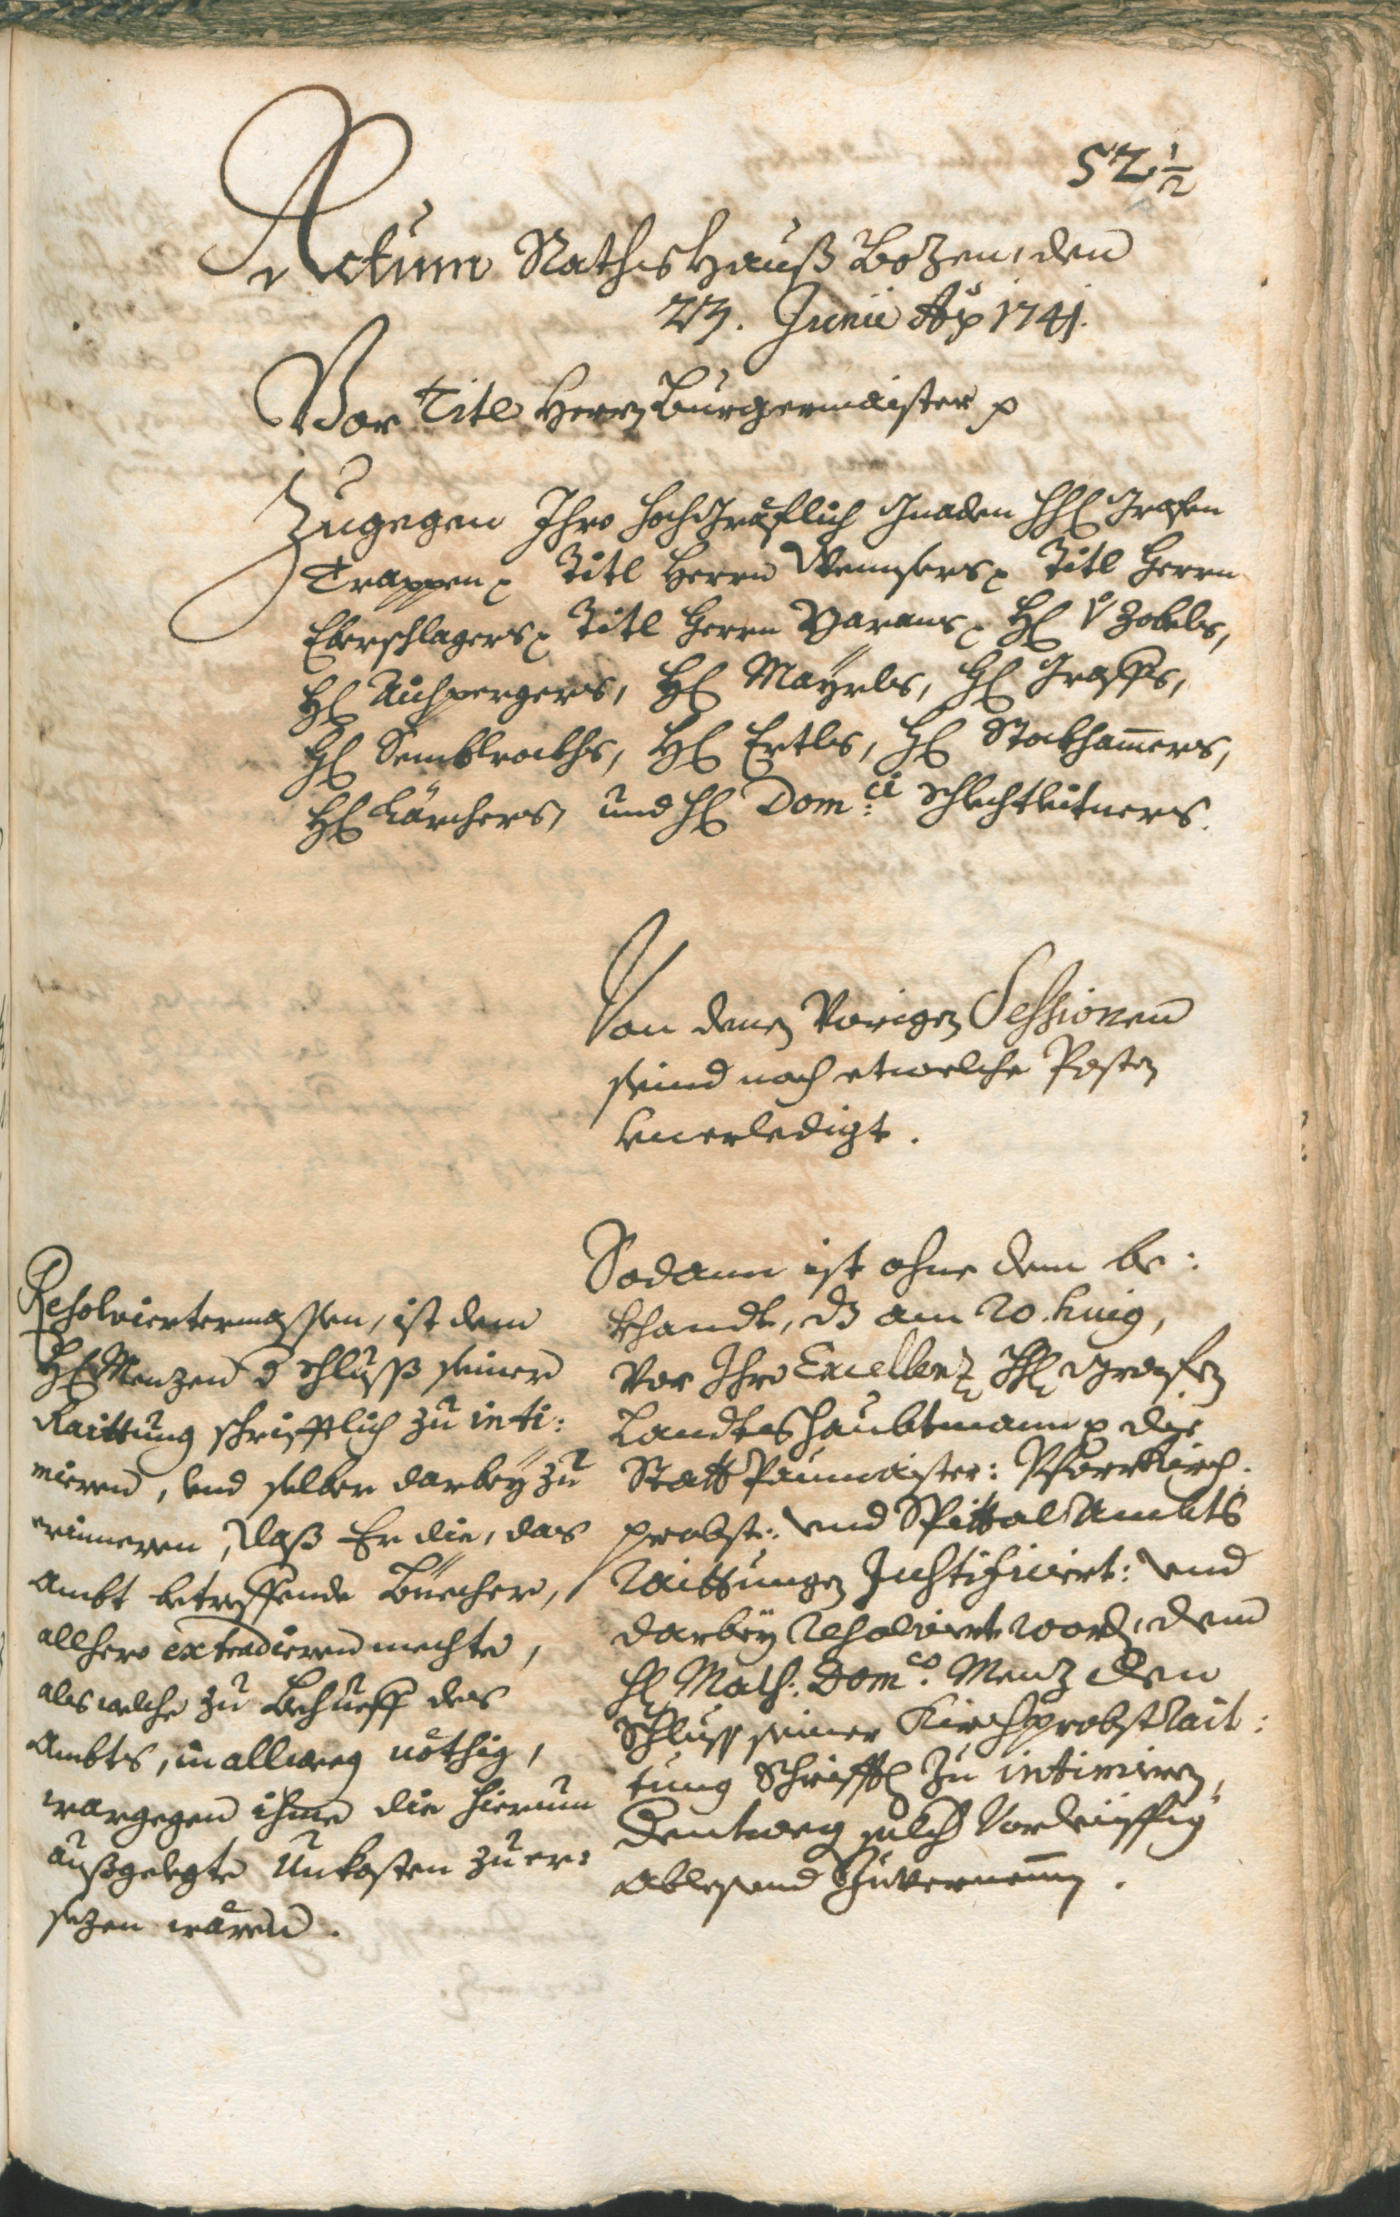 52 1/2
Actum Rathshauß Bozen, den
23. Junii Aõ p 1741.
Vor Titl Herrn Burgermaister p
Zugegen Ihro hochgräflich Gnaden HH Grafen
Trappen p Titl Herrn Wenserß p Titl Herrn
Eberschlagers p Titl Herrn p H v Zobels,
H Aichpergers, H Mayrls, H Graffs,
H H Ertls, H Stokhamers,
H Kärchers, und H Dom:ci Schlechtleitners.
Von denen Vorigen Sessionen
seind noch etwelche Posten
unerledigt.
Sodann ist ohne dem be:
khandt, dz am 20. huig,
vor Ihro Excellenz HH Grafen
Landtshaubtmann p die
Statt Paumaister: Pfarrkirch:
probst: und Spittal Ambts
Raittungen Justificiert: und
darbey resolviert word, dem
H Math: Dom:co Menz den
Schluss seiner Kirchprobst Rait:
tung Schrifftl zu intimiren,
dentweg solch Vorleüffig
ablesend zuvernemen.
Resolviertermassen, ist dem
H Menzen d Schluß seiner
Raittung schrifftlich zu inti:
mieren, und selber darbey zu
erinneren, daß Er die, das
Ambt betreffende Büecher,
allhero extradieren mechte,
als welche zu Behueff des
Ambts, in allweeg nöthig,
wargegen ihme die hierum
außgelegte Unkosten zu er:
sezen wären.